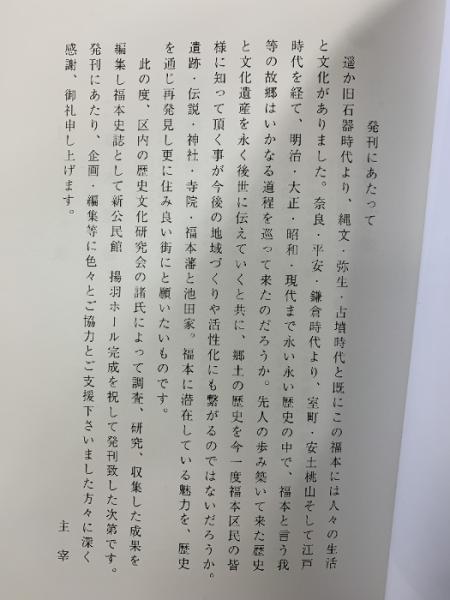 発刊にあたって
遥か旧石器時代より、縄文・弥生・古墳時代と既にこの福本には人々の生活
と文化がありました。奈良・平安・鎌倉時代より、室町・安土桃山そして江戸
時代を経て、明治・大正・昭和・現代まで永い永い歴史の中で、福本と言う我
等の故郷はいかなる道程を巡って来たのだろうか。先人の歩み築いて来た歴史
と文化遺産を永く後世に伝えていくと共に、郷土の歴史を今一度福本区民の皆
様に知って頂く事が今後の地域づくりや活性化にも繋がるのではないだろうか。
遺跡・伝説・神社・寺院・福本藩と池田家。福本に潜在している魅力を、歴史
を通じ再発見し更に住み良い街にと願いたいものです。
此の度、区内の歴史文化研究会の諸氏によって調査、研究、収集した成果を
編集し福本史誌として新公民館　揚羽ホール完成を祝して発刊致した次第です。
発刊にあたり、企画・編集等に色々とご協力とご支援下さいました方々に深く
感謝、御礼申し上げます。
主宰